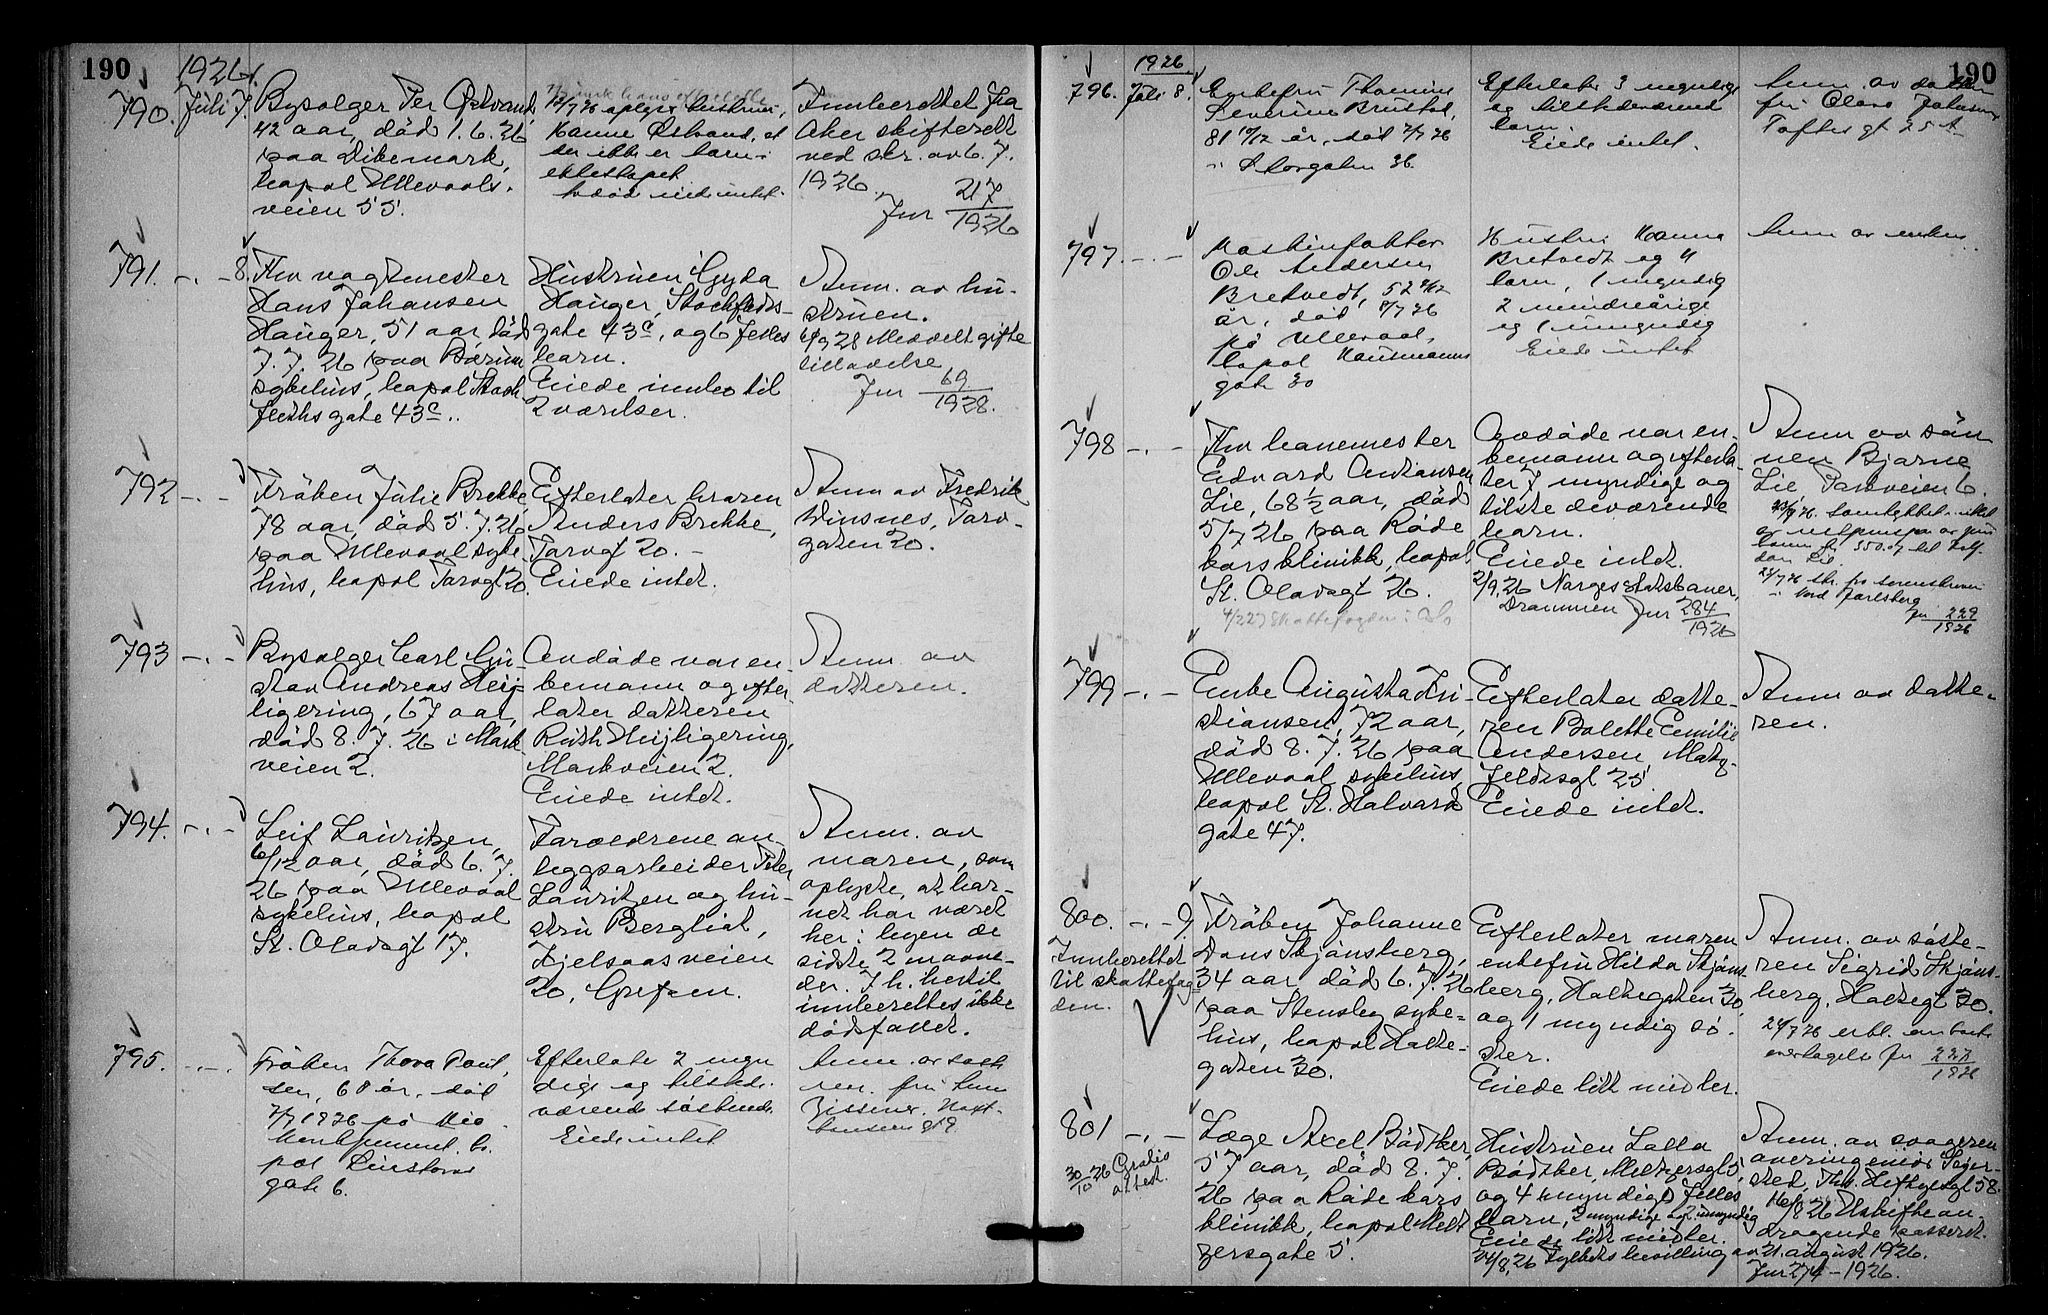 190
1926
790. Juli 7.
Byselger Per Østvand,
42 aar, död 1.6.26
paa Dikemark,
bopæl Ullevaals-
veien 55.
12/7 26 oplyser hustruen,
Hanne Østvand, at
der ikke er barn i
ekteskapet.
Avdöde eiede intet.
Innberettet fra
Aker skifterett
ved skr. av 6.7.
1926.
Jnr 217/1926
791. -.- 8.
Fhv vagtmester
Hans Johansen
Hauger, 51 aar, död
7.7.26 paa Bærum
sykehus, bopæl Stock
fleths gate 43c.
Hustruen Gyda
Hauger, Stockfleths-
gate 43c, og 6 felles
barn.
Eiede innbo til
2 værelser.
Anm. av hu-
struen.
28 Meddelt gifte
tilladelse
Jnr 69/1928.
792 -.-
Fröken Julie Brekke,
78 aar, död 5.7.26
paa Ullevaal syke
hus, bopæl Torvgt 20.
Efterlater broren
Anders Brekke,
Torvgt 20. -
Eiede intet.
Anm av Fredrik
Winsnes, Torv-
gaten 20.
793 -.-
Byselger Carl Gu-
stav Andreas Heij-
ligering, 67 aar,
död 8.7.26 i Mark
veien 2.
Avdöde var en-
kemann og efter
later datteren
Ruth Heijligering,
Markveien 2.
Eiede intet.
Anm. av
datteren.
794. -.-
Leif Lauritzen,
6/12 aar, död 6.7.
26 paa Ullevaal
sykehus, bopæl
St. Olavsgt 17.
Foreldrene an-
leggsarbeider Peder
Lauritzen og hu-
stru Bergliot,
Kjelsaasveien
20, Grefsen.
Anm. av
moren, som
oplyste, at bar-
net har været
her i byen de
sidste 2 maane-
der. I h. hertil
innberettes ikke
dödsfallet.
795. -.-
Fröken Thora Paul
sen, 60 år, död
7/7 1926 på Dia
konhjemmet, bo
pæl
gate 6.
Efterlater 2 myn
dige og tilstede-
værende söskende
Eiede intet
Anm. av söst
ren, fru Anna
796. 1926 Juli 8.
Enkefru Thomine
Severine Brustad,
81 10/12 år, död 7/7 26
i Storgaten 36.
Efterlater 3 myndige
og tilstedeværende
barn.
Eiede intet.
Anm. av datter
fru Olava Johansen
Toftes gt 25
190
797. -.-
Maskinpakker
Ole Andersen
Bretvedt, 52
år, död 8/7 26
på Ullevaal,
bopæl Hausmanns
gate 30
Hustru Hanna
Bretvedt og 4
barn, 1 myndig
2 mindreårige
og 1 umyndig
Eiede intet
Anm av enken
798 -.-
Fhv banemester
Edvard Antiansen
Lie, 68 1/2 aar, död
5/7 26 paa Röde
kors klinikk, bopæl
St. Olavsgt 26.
Avdöde var en-
kemann og efterla-
ter 7 myndige og
tilstedeværende
barn.
Eiede intet.
2/9.26 Norges Statsbaner,
Drammen Jnr 284/1926
4/2 27 Skattefogden i Oslo
Anm av sön
nen Bjarne
Lie, Parkveien 6.
Jnr 229/1926
799 -.-
Enke Augusta Kri-
stiansen, 72 aar,
död 8.7.26 paa
Ullevaal sykehus,
bopæl St. Halvards
gate 47.
Efterlater datte-
ren Bolette Emilie
Andersen, Motz-
feldtsgt 25.
Eiede intet.
Anm av datte-
ren.
800. -.- 9.
Innberettet
til skattefog
den.
Fröken Johanne
Dons Skjönsberg,
34 aar, död 6.7.26
paa Stensby syke-
hus, bopæl Holte-
gaten 30.
Efterlater moren
enkefru Hilda Skjöns-
berg, Holtegaten 30,
og 1 myndig sö-
ster.
Eiede litt midler.
Anm. av söste-
ren Sigrid Skjöns-
berg, Holtegt 30.
24/7 26 erkl. om boets
overtagelse Jnr 227/1926
801 -.-
30/10 26 Gratis
attest.
Læge Axel Bödtker,
57 aar, död 8.7.
26 paa Röde kors
klinikk, bopæl Melt
zersgate 5.
Hustruen Lalla
Bödtker, Meltzersgt 5,
og 4 myndige felles
barn, 2 myndige og 2 umyndig
Eiede litt midler.
24/8.26 Fylkets bevilling av 21. august 1926.
Anm. av svogeren
overingeniör Seier-
sted, Th. Heftyesgt 58.
16/8 26 Uskifte an-
dragende passeret.
Jnr 274-1926.